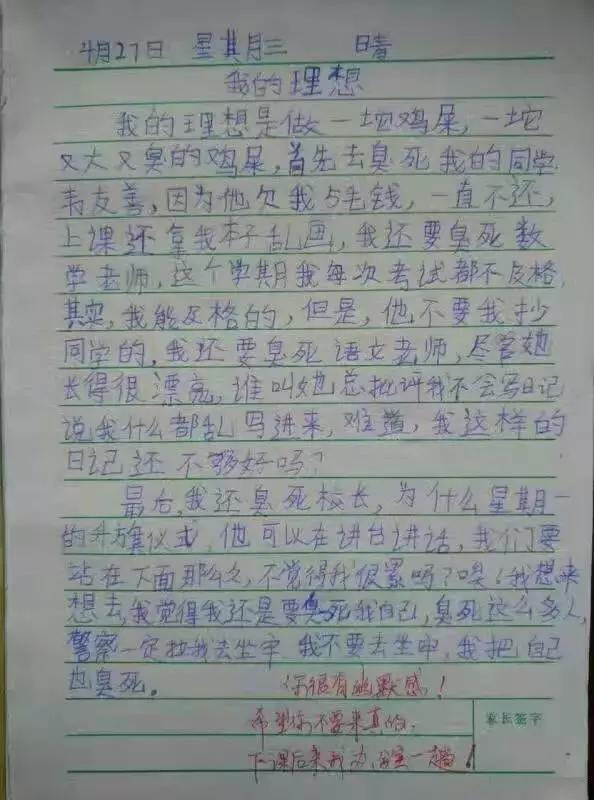 4月27日 星其月三 晴
我的理想
我的理想是做一坨鸡屎，一坨
又大又臭的鸡屎，首先去臭死我的同学
韦友善，因为他欠我5毛钱，一直不还，
上课还拿我本子乱画，我还要臭死数
学老师，这个学期我每次考试都不及格，
其实，我能及格的，但是，他不要我抄
同学的，我还要臭死语文老师，尽管她
长得很漂亮，谁叫她总批评我不会写日记
说我什么都乱写进来，难道，我这样的
日记还不够好吗？
最后，我还臭死校长，为什么星期一
的升旗仪式，他可以在讲台讲话，我们要
站在下面那么久，不觉得我很累吗？唉！我想来
想去，我觉得我还是要臭死我自己，臭死这么多人，
警察一定拉我去坐牢，我不要去坐牢，我把自己
也臭死。
你很有幽默感！
希望你不要来真的，
家长签字
下课后来我办公室一趟！